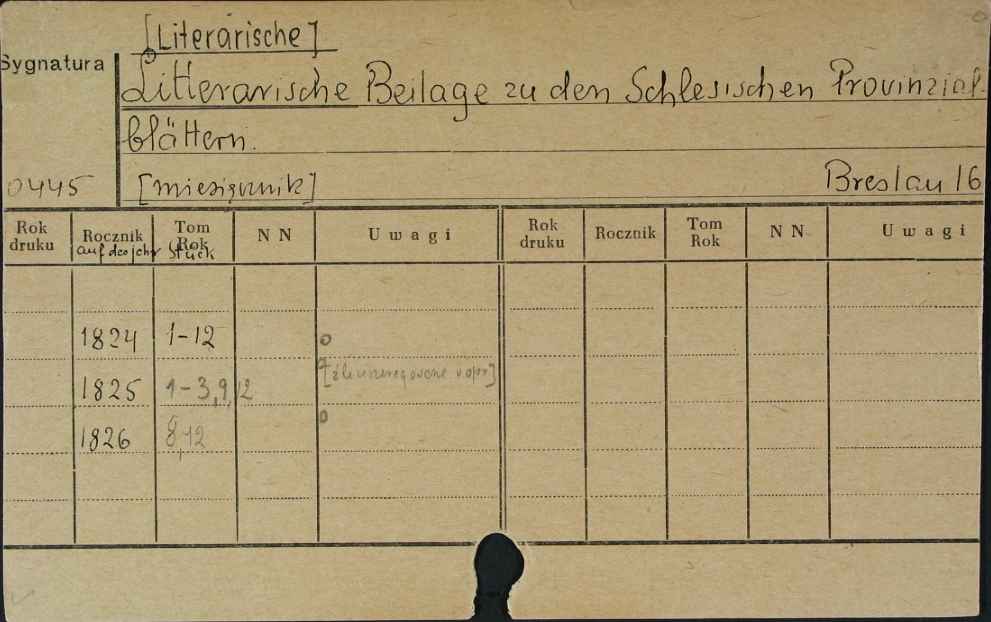 [Literarische]
Sygnatura
Litterarische Beilage zu den Schlesischen Provinzial-
blättern.
0445 [miesięcznik] Breslau 16
Rok druku Rocznik auf das Jahr Tom Rok Stück N N Uwagi Rok druku Rocznik Tom Rok N N Uwagi
1824 1-12 o
1825 1-3,9,12 [źle w opr]
1826 8,12 o